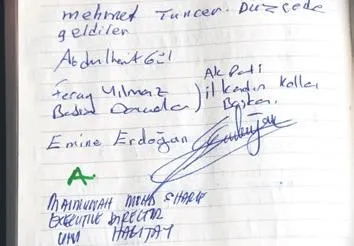 mehmet Tuncer. Düzcede
geldiler
Abdulhait Gül
Feray Yılmaz
Bedia
Ak Parti
il Kadın Kolları
Başkanı
Emine Erdoğan
A.
MAIMUNAH MOHD SHARIF
EXECUTIVE DIRECTOR
UN HABITAT